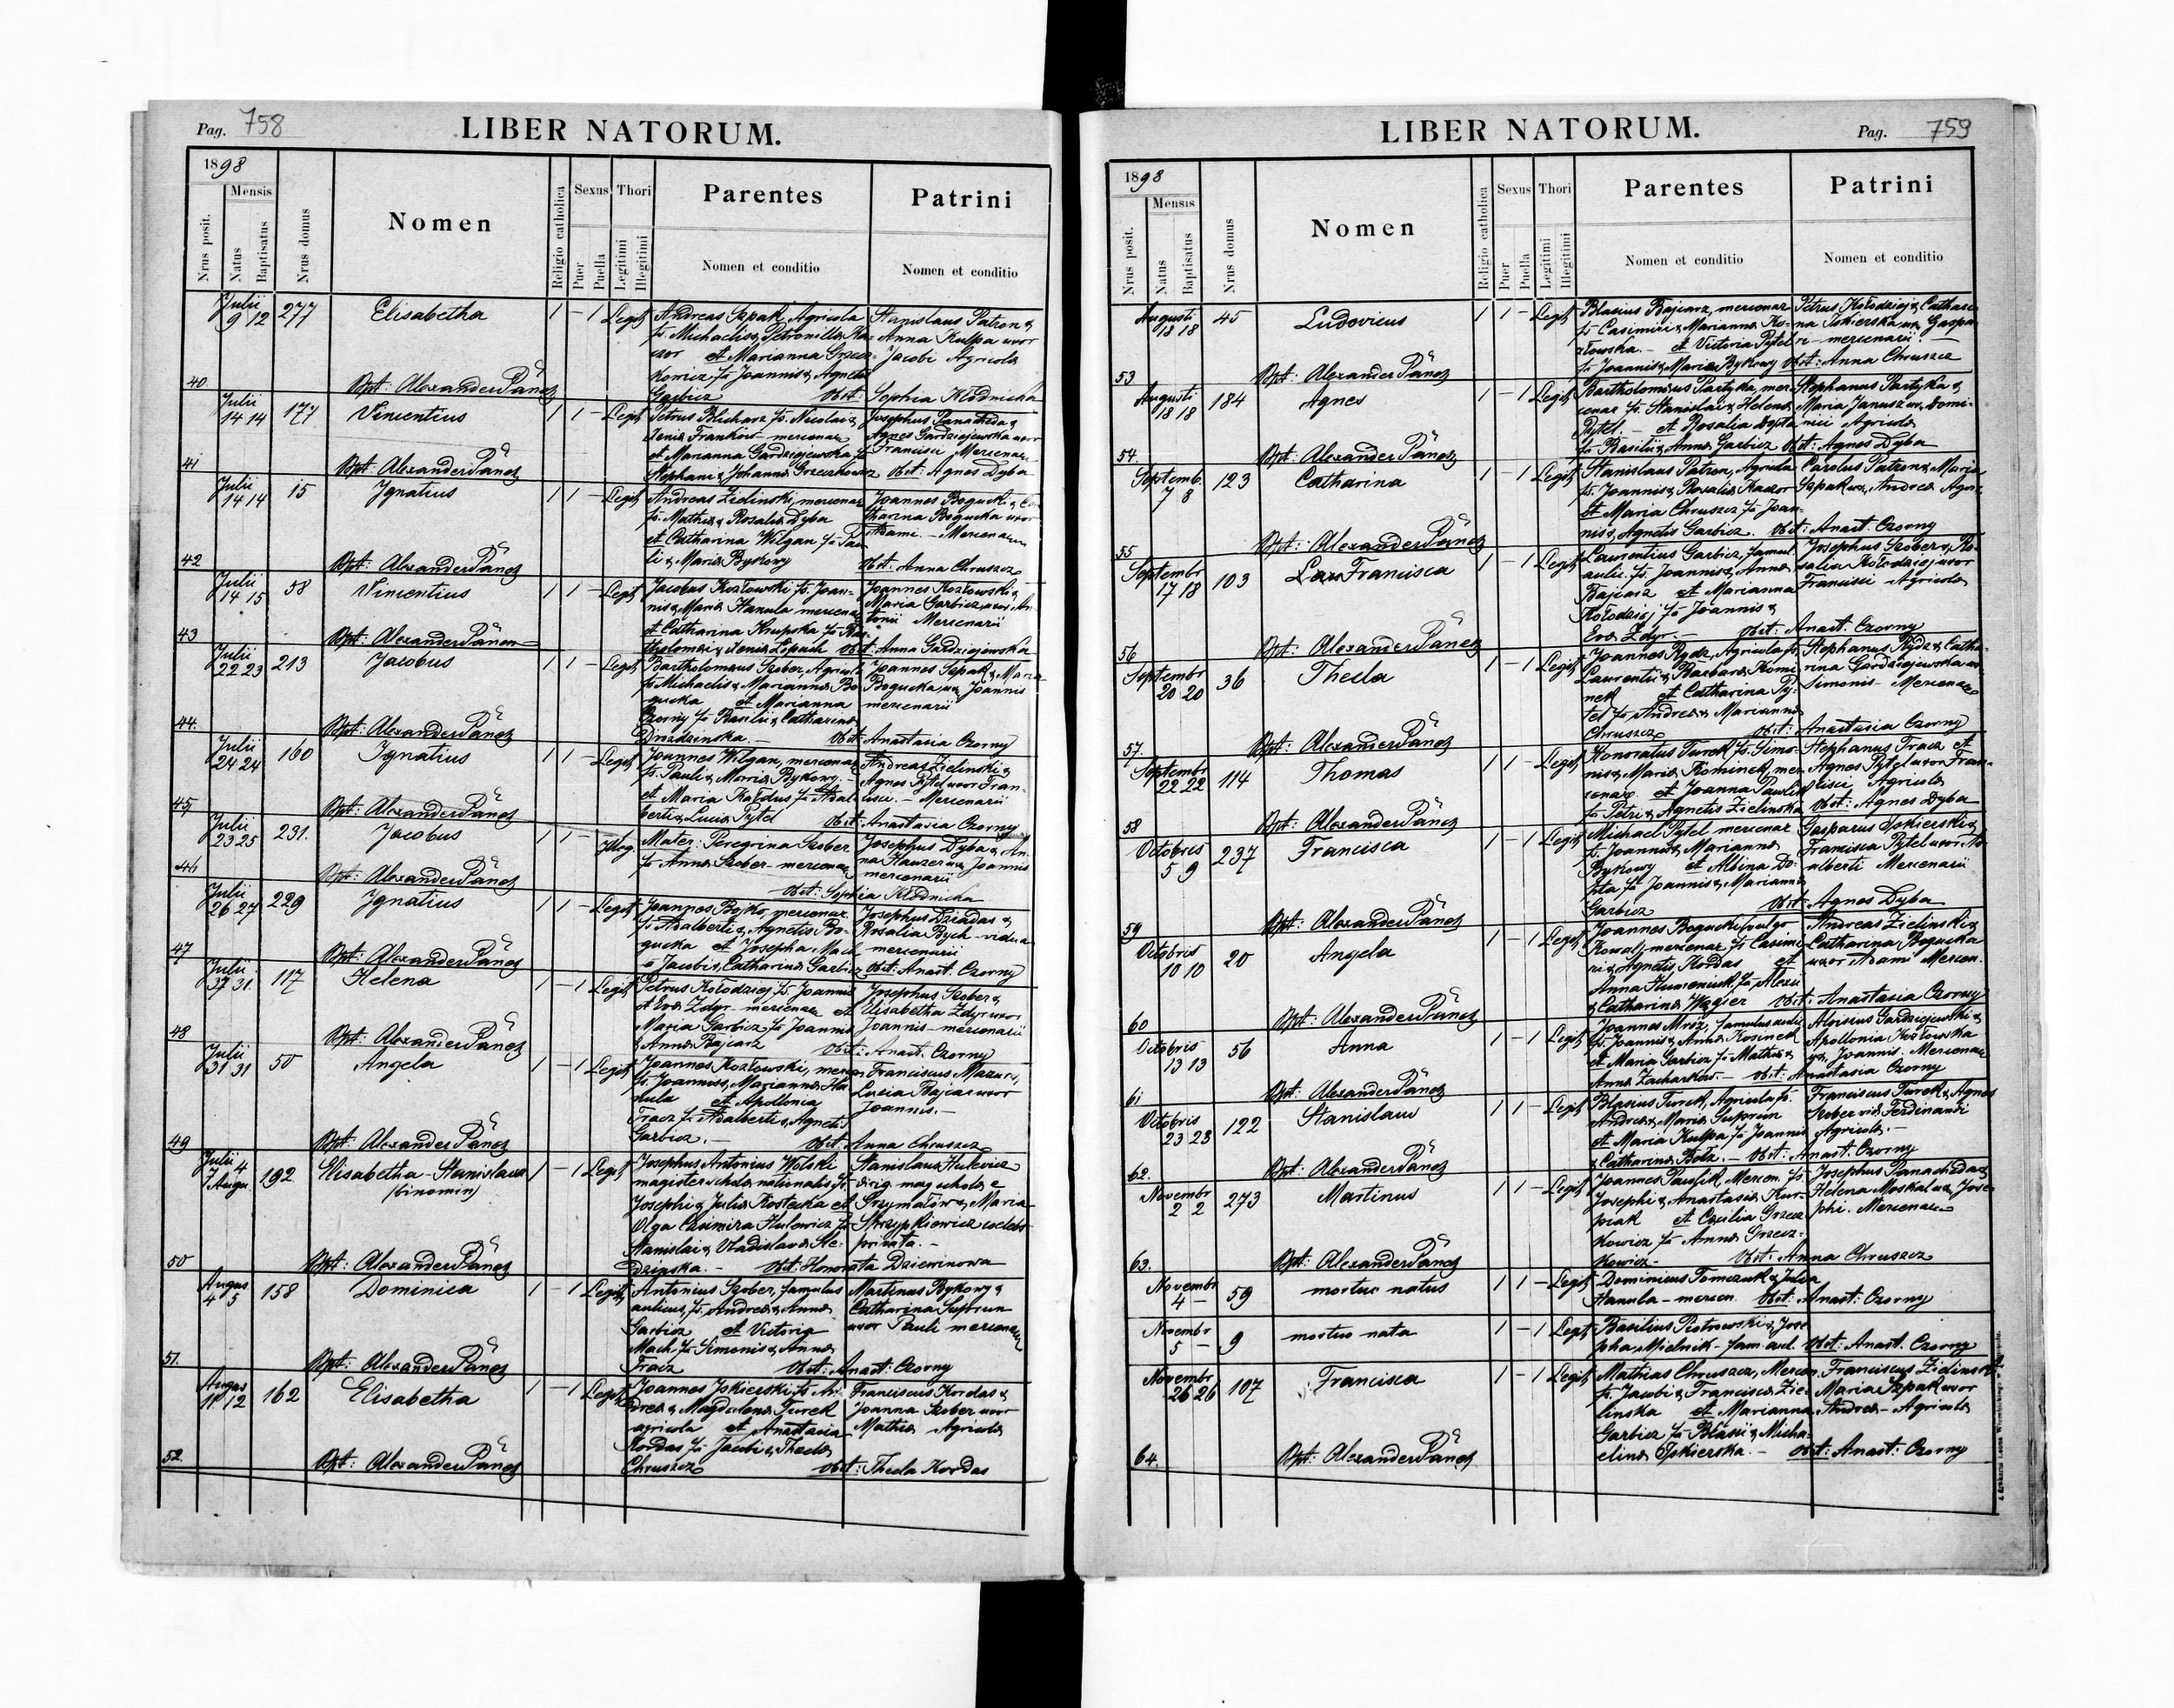 Pag. 758
LIBER NATORUM.
1898
Mensis
Nrus posit.
Natus
Baptisatus
Nrus domus
Nomen
Religio catholica
Sexus
Puer
Puella
Thori
Legitimi
Illegitimi
Parentes
Nomen et conditio
Patrini
Nomen et conditio
40 Julii 9 12 277 Elisabetha 1 - 1 Legit
Andreas Szpak, Agricola
fs. Michaelis & Petronilla Ka-
czor et Marianna Grzesz-
kowicz fa Joannis & Agnetis
Garbicz
Stanislaus Patron &
Anna Kulpa uxor
Jacobi Agricola
Bpt: Alexander Pànch
Obst: Sophia Kłodnicka
41 Julii 14 14 177 Vincentius 1 1 - Legit
Petrus Blicharz fs. Nicolai &
Xenia Franków - mercenar
et Marianna Gardziejewska fa
Stephani & Johanna
Josephus Panachida &
Agnes Gardziejewska uxor
Francisci Mercenar
Bpt: Alexander Pànch
Obst: Agnes Dyba
42 Julii 14 14 15 Ignatius 1 1 - Legit
Andreas Zielinski, mercenar
fs. Mathia & Rosalia Dyba
et Catharina Wilgan fa Pau
li & Maria Bykowy
Joannes Bogucki & Ca
tharina Bogucka uxor
Adami - Mercenar
Bpt: Alexander Pànch
Obst: Anna Chruszcz
43 Julii 14 15 58 Vincentius 1 1 - Legit
Jacobus Kozłowski fs. Joan-
nis & Maria Hanula mercenar
et Catharina Krupska fa Bar-
tholomæi & Xenia
Joannes Kozłowski &
Maria Garbicz uxor An-
tonii Mercenarii
Bpt: Alexander Pànch
Obst: Anna Gardziejewska
44. Julii 22 23 213 Jacobus 1 1 - Legit
Bartholomæus Szober, Agricola
fs Michaelis & Marianna Bo
gucka et Marianna
Czorny fa Basilii & Catharina
Drozdzinska. -
Joannes Szpak & Maria
Bogucka ux. Joannis
mercenarii
Bpt: Alexander Pànch
Obst: Anastasia Czorny
45 Julii 24 24 160 Ignatius 1 1 - Legit
Joannes Wilgan, mercenar
fs. Pauli & Maria Bykowy. -
et Maria Kałdus fa Adal-
berti & Lucia Pytel
Andreas Zielinski &
Agnes Pytel uxor Fran-
cisci. - Mercenarii
Bpt: Alexander Pànch
Obst: Anastasia Czorny
46 Julii 23 25 231. Jacobus 1 1 - Illeg.
Mater: Peregrina Szober
fa Anna Szober - mercenar
Josephus Dyba & An-
na Hauzer ux Joannis
mercenarii
Bpt: Alexander Pànch
Obst: Sophia Kłodnicka
47 Julii 26 27 229 Ignatius 1 1 - Legit
Joannes Bojko, mercenar.
fs. Adalberti & Agnetis Bo-
gucka et Josepha Mach
fa Jacobi & Catharina Garbicz
Josephus Dziadas &
Rosalia Bych - vidua
mercenarii
Bpt: Alexander Pànch
Obst: Anast. Czorny
48 Julii 31. 117 Helena 1 - 1 Legit
Petrus Kołodziej fs. Joannis
et Eva Zdyr - mercenar et
Maria Garbicz fa Joannis
& Anna Bajcarz
Josephus Szober &
Elisabetha Zdyr uxor
Joannis - mercenarii
Bpt: Alexander Pànch
Obst: Anast. Czorny
49 Julii 31 31 50 Angela 1 - 1 Legit
Joannes Kozłowski, mercen.
fs. Joannis & Marianna Ha
nula et Apollonia
Tracz fa Adalberti & Agnetis
Garbicz. -
Franciscus Mazur &
Lucia Bajcar uxor
Joannis. -
Bpt: Alexander Pànch
Obst: Anna Chruszcz
50 Julii 4 7 Augu. 192 Elisabetha - Stanislava 1 - 1 Legit
(binomin)
Josephus Antonius Wolski
magister scholæ nationalis fs.
Josephi & Julia Kostecka et
Olga Casimira Hulewicz fa
Stanislai & Vladislava Sle-
dzinska. -
Stanislaus Hulewicz
dirig. mag. scholæ e
Grzymałów & Maria
Skrzypkiewicz coelebs
privata. -
Bpt: Alexander Pànch
Obst: Honorata Dziewinowa
51. Augus 4 5 158 Dominica 1 - 1 Legit
Antonius Szober, famulus
aulicus, fs. Andrea & Anna
Garbicz et Victoria
Mach fa Simonis & Anna
Tracz
Martinus Bykowy &
Catharina Suprun
uxor Pauli mercenar
Bpt: Alexander Pànch
Obst: Anast: Czorny
52. Augus 11 12 162 Elisabetha 1 - 1 Legit
Joannes Iskierski fs An-
drea & Magdalena Turek
agricola et Anastasia
Kordas fa Jacobi & Thecla
Chruszcz
Franciscus Kordas &
Joanna Szober uxor
Mathia Agricola
Bpt: Alexander Pànch
Obst: Thecla Kordas
LIBER NATORUM.
Pag. 759
1898
Mensis
Nrus posit.
Natus
Baptisatus
Nrus domus
Nomen
Religio catholica
Sexus
Puer
Puella
Thori
Legitimi
Illegitimi
Parentes
Nomen et conditio
Patrini
Nomen et conditio
53 Augusti 18 18 45 Ludovicus 1 1 - Legit
Blasius Bajcarz, mercenar
fs Casimiri & Marianna Ko-
złowska. - et Victoria Pytel
fa Joannis & Maria Bykowy
Petrus Kołodziej & Cathari
na Iskierska ux. Gaspa
ri - mercenarii. -
Bpt: Alexander Pànch
Obst: Anna Chruszcz
54. Augusti 18 18 184 Agnes 1 - 1 Legit
Bartholomæus Partyka, mer
cenar fs. Stanislai & Helena
Pytel. - et Rosalia Dysta
fa Basilii & Anna Garbicz
Stephanus Partyka &
Maria Janusz ux. Domi-
nici Agricola
Bpt: Alexander Pànch
Obst: Agnes Dyba
55 Septemb. 7 8 123 Catharina 1 - 1 Legit
Stanislaus Patron, Agricola
fs. Joannis & Rosalia Kaczor
et Maria Chruszcz fa Joan-
nis & Agnetis Garbicz.
Carolus Patron & Maria
Szpak ux. Andrea Agric.
Bpt: Alexander Pànch
Obst: Anast. Czorny
56 Septembr 17 18 103 Francisca 1 - 1 Legit
Laurentius Garbicz, famul.
aulic. fs. Joannis & Anna
Bajcarz et Marianna
Kołodziej fa Joannis &
Eva Zdyr. -
Josephus Szober & Ro-
salia Kołodziej uxor
Francisci Agricola
Bpt: Alexander Pànch
Obst: Anast. Czorny
57. Septembr 20 20 36 Thecla 1 - 1 Legit
Joannes Rydz, Agricola fs.
Laurentii & Barbara Komi
nek et Catharina Py-
tel fa Andrea & Marianna
Chruszcz
Stephanus Rydz & Catha-
rina Gardziejewska ux
Simonis - Mercenar
Bpt: Alexander Pànch
Obst: Anastasia Czorny
58 Septembr 22 22 114 Thomas 1 1 - Legit
Honoratus Turek fs. Simo-
nis & Maria Kominek, mer
cenar. et Joanna Pawlik
fa Petri & Agnetis Zielinska
Stephanus Tracz et
Agnes Pytel uxor Fran-
cisci Agricola
Bpt: Alexander Pànch
Obst: Agnes Dyba
59 Octobris 5 9 237 Francisca 1 - 1 Legit
Michael Pytel mercenar
fs. Joannis & Marianna
Bykowy et Albina Do-
fa Joannis & Marianna
Garbicz
Gasparus Iskierski &
Francisca Pytel uxor Ad
alberti Mercenarii
Bpt: Alexander Pànch
Obst: Agnes Dyba
60 Octobris 10 10 20 Angela 1 - 1 Legit
Joannes Bogucki (vulgo
Kowal) mercenar fs Casimi-
ri & Agnetis Kordas et
Anna Humeniuk fa Alexii
& Catharina Węgier
Andreas Zielinski &
Catharina Bogucka
uxor Adami Mercen.
Bpt: Alexander Pànch
Obst: Anastasia Czorny
61 Octobris 13 13 56 Anna 1 - 1 Legit
Joannes Mróz, famulus aulic
fs. Joannis & Anna Kosinek
et Maria Garbicz fa Mathia &
Anna Zacharków. -
Aloisius Gardziejewski &
Apollonia Kozłowska
ux. Joannis. Mercenar
Bpt: Alexander Pànch
Obst: Anastasia Czorny
62. Octobris 23 23 122 Stanislaus 1 1 - Legit
Blasius Turek, Agricola fs.
Andrea & Maria Suprun
et Maria Kulpa fa Joannis
& Catharina Bolz. -
Franciscus Turek & Agnes
Szober vid. Ferdinandi
Agricola. -
Bpt: Alexander Pànch
Obst: Anast. Czorny
63. Novembr 2 2 273 Martinus 1 1 - Legit
Joannes Pawlik, Mercen. fs.
Josephi & Anastasia Kur-
piak et Cæcilia Grzesz
kowicz fa Anna Grzesz-
kowicz -
Josephus Panachida &
Helena Moskal ux. Jose-
phi. Mercenar
Bpt: Alexander Pànch
Obst: Anna Chruszcz
Novembr 4 - 59 mortuo natus 1 1 - Legit
Dominicus Tomczuk & Julia
Hanula - mercen. Obst: Anast: Czorny
Novembr 5 - 9 mortuo nata 1 - 1 Legit
Basilius Piotrowski & Jose
pha Mielnik - fam. aul. Obst: Anast. Czorny
64. Novembr 26 26 107 Francisca 1 - 1 Legit
Mathias Chruszcz, Mercen
fs. Jacobi & Francisca Zie-
linska et Marianna
Garbicz fa Blasii & Micha-
elina Iskierska. -
Franciscus Zielinski &
Maria Szpak uxor
Andrea - Agricola
Bpt: Alexander Pànch
Obst: Anast: Czorny